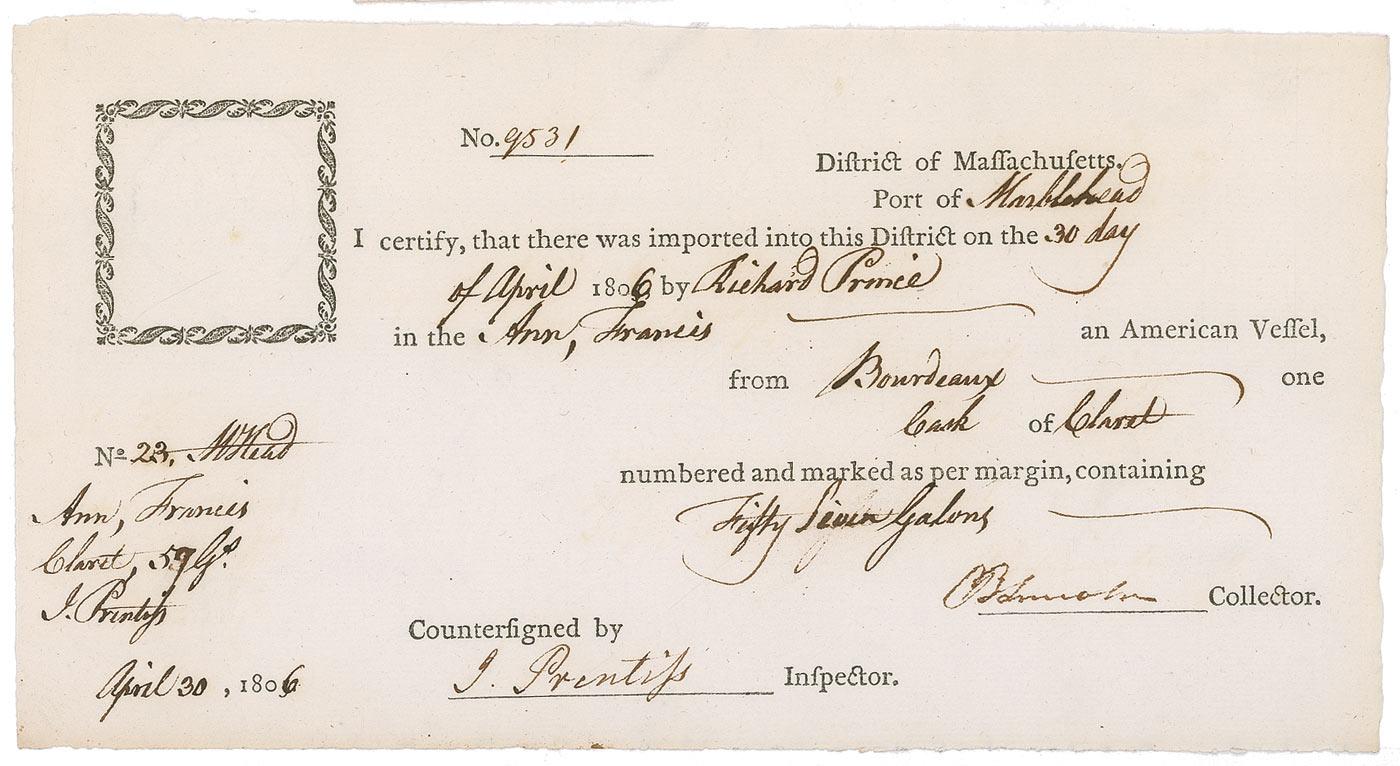 No. 9531
Diſtrict of Maſſachuſetts.
Port of Marblehead
I certify, that there was imported into this Diſtrict on the 30 day
of April 1806 by Richard Prince
in the Ann, Francis an American Veſſel,
from Bourdeaux one
Cask of Claret
numbered and marked as per margin, containing
Fifty Seven Galons
B Lincoln Collector.
Counterſigned by
J. Prentiſs Inſpector.
No 23, MHead
Ann, Francis
Claret, 57 Gs.
J. Prentiſs
April 30, 1806